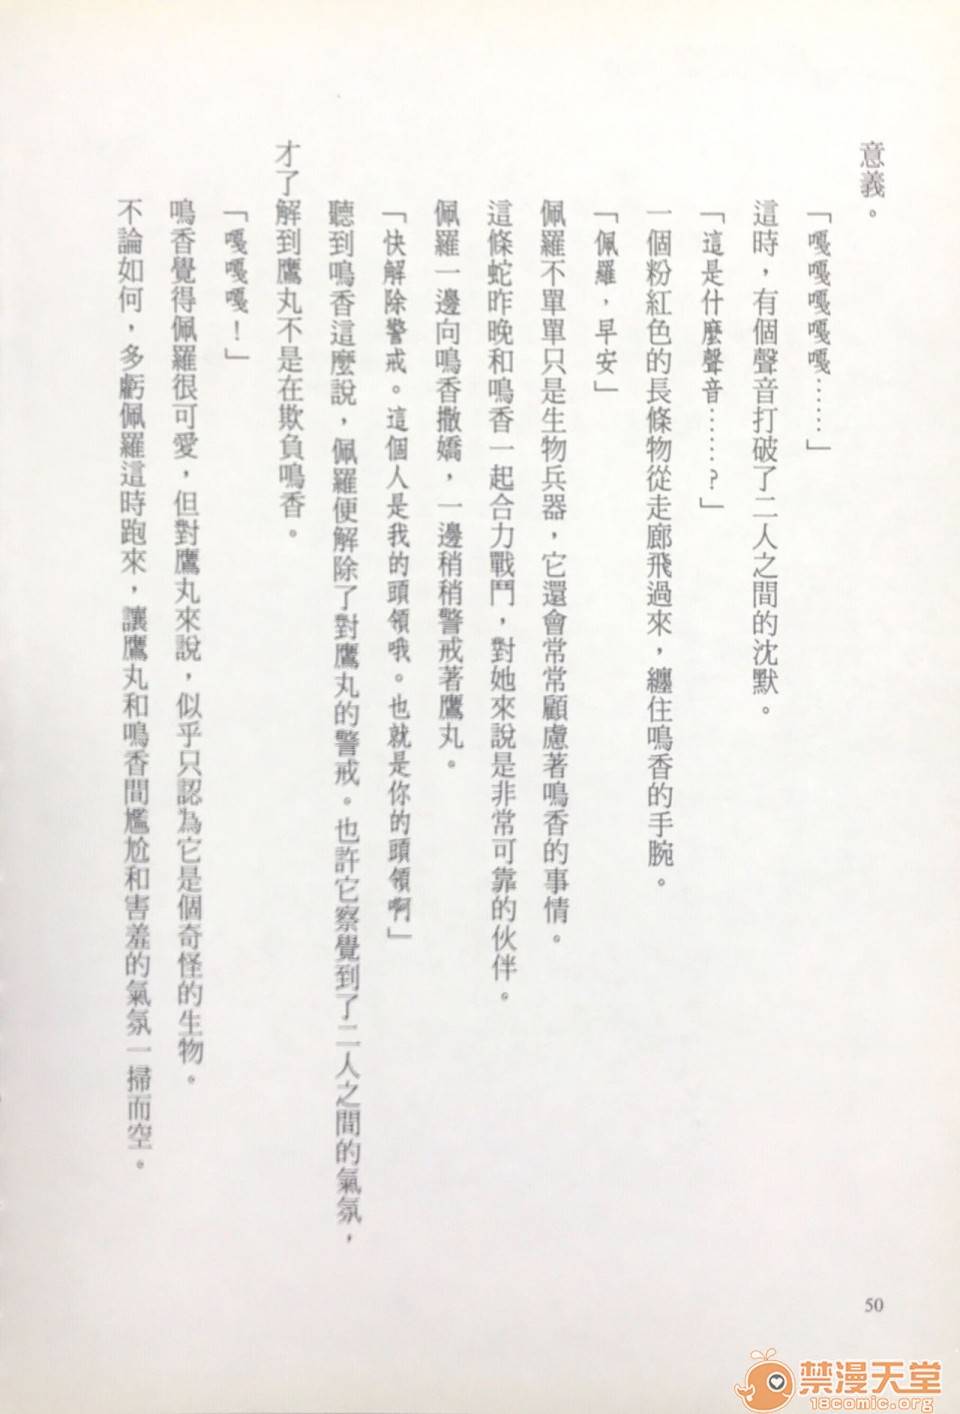 意義。
「嘎嘎嘎嘎嘎……」
這時，有個聲音打破了二人之間的沈默。
「這是什麼聲音……？」
一個粉紅色的長條物從走廊飛過來，纏住鳴香的手腕。
「佩羅，早安」
佩羅不單單只是生物兵器，它還會常常顧慮著鳴香的事情。
這條蛇昨晚和鳴香一起合力戰鬥，對她來說是非常可靠的伙伴。
佩羅一邊向鳴香撒嬌，一邊稍稍警戒著鷹丸。
「快解除警戒。這個人是我的頭領哦。也就是你的頭領啊」
聽到鳴香這麼說，佩羅便解除了對鷹丸的警戒。也許它察覺到了二人之間的氣氛，
才了解到鷹丸不是在欺負鳴香。
「嘎嘎嘎！」
鳴香覺得佩羅很可愛，但對鷹丸來說，似乎只認為它是個奇怪的生物。
不論如何，多虧佩羅這時跑來，讓鷹丸和鳴香間尷尬和害羞的氣氛一掃而空。
50
禁漫天堂
18comic.org